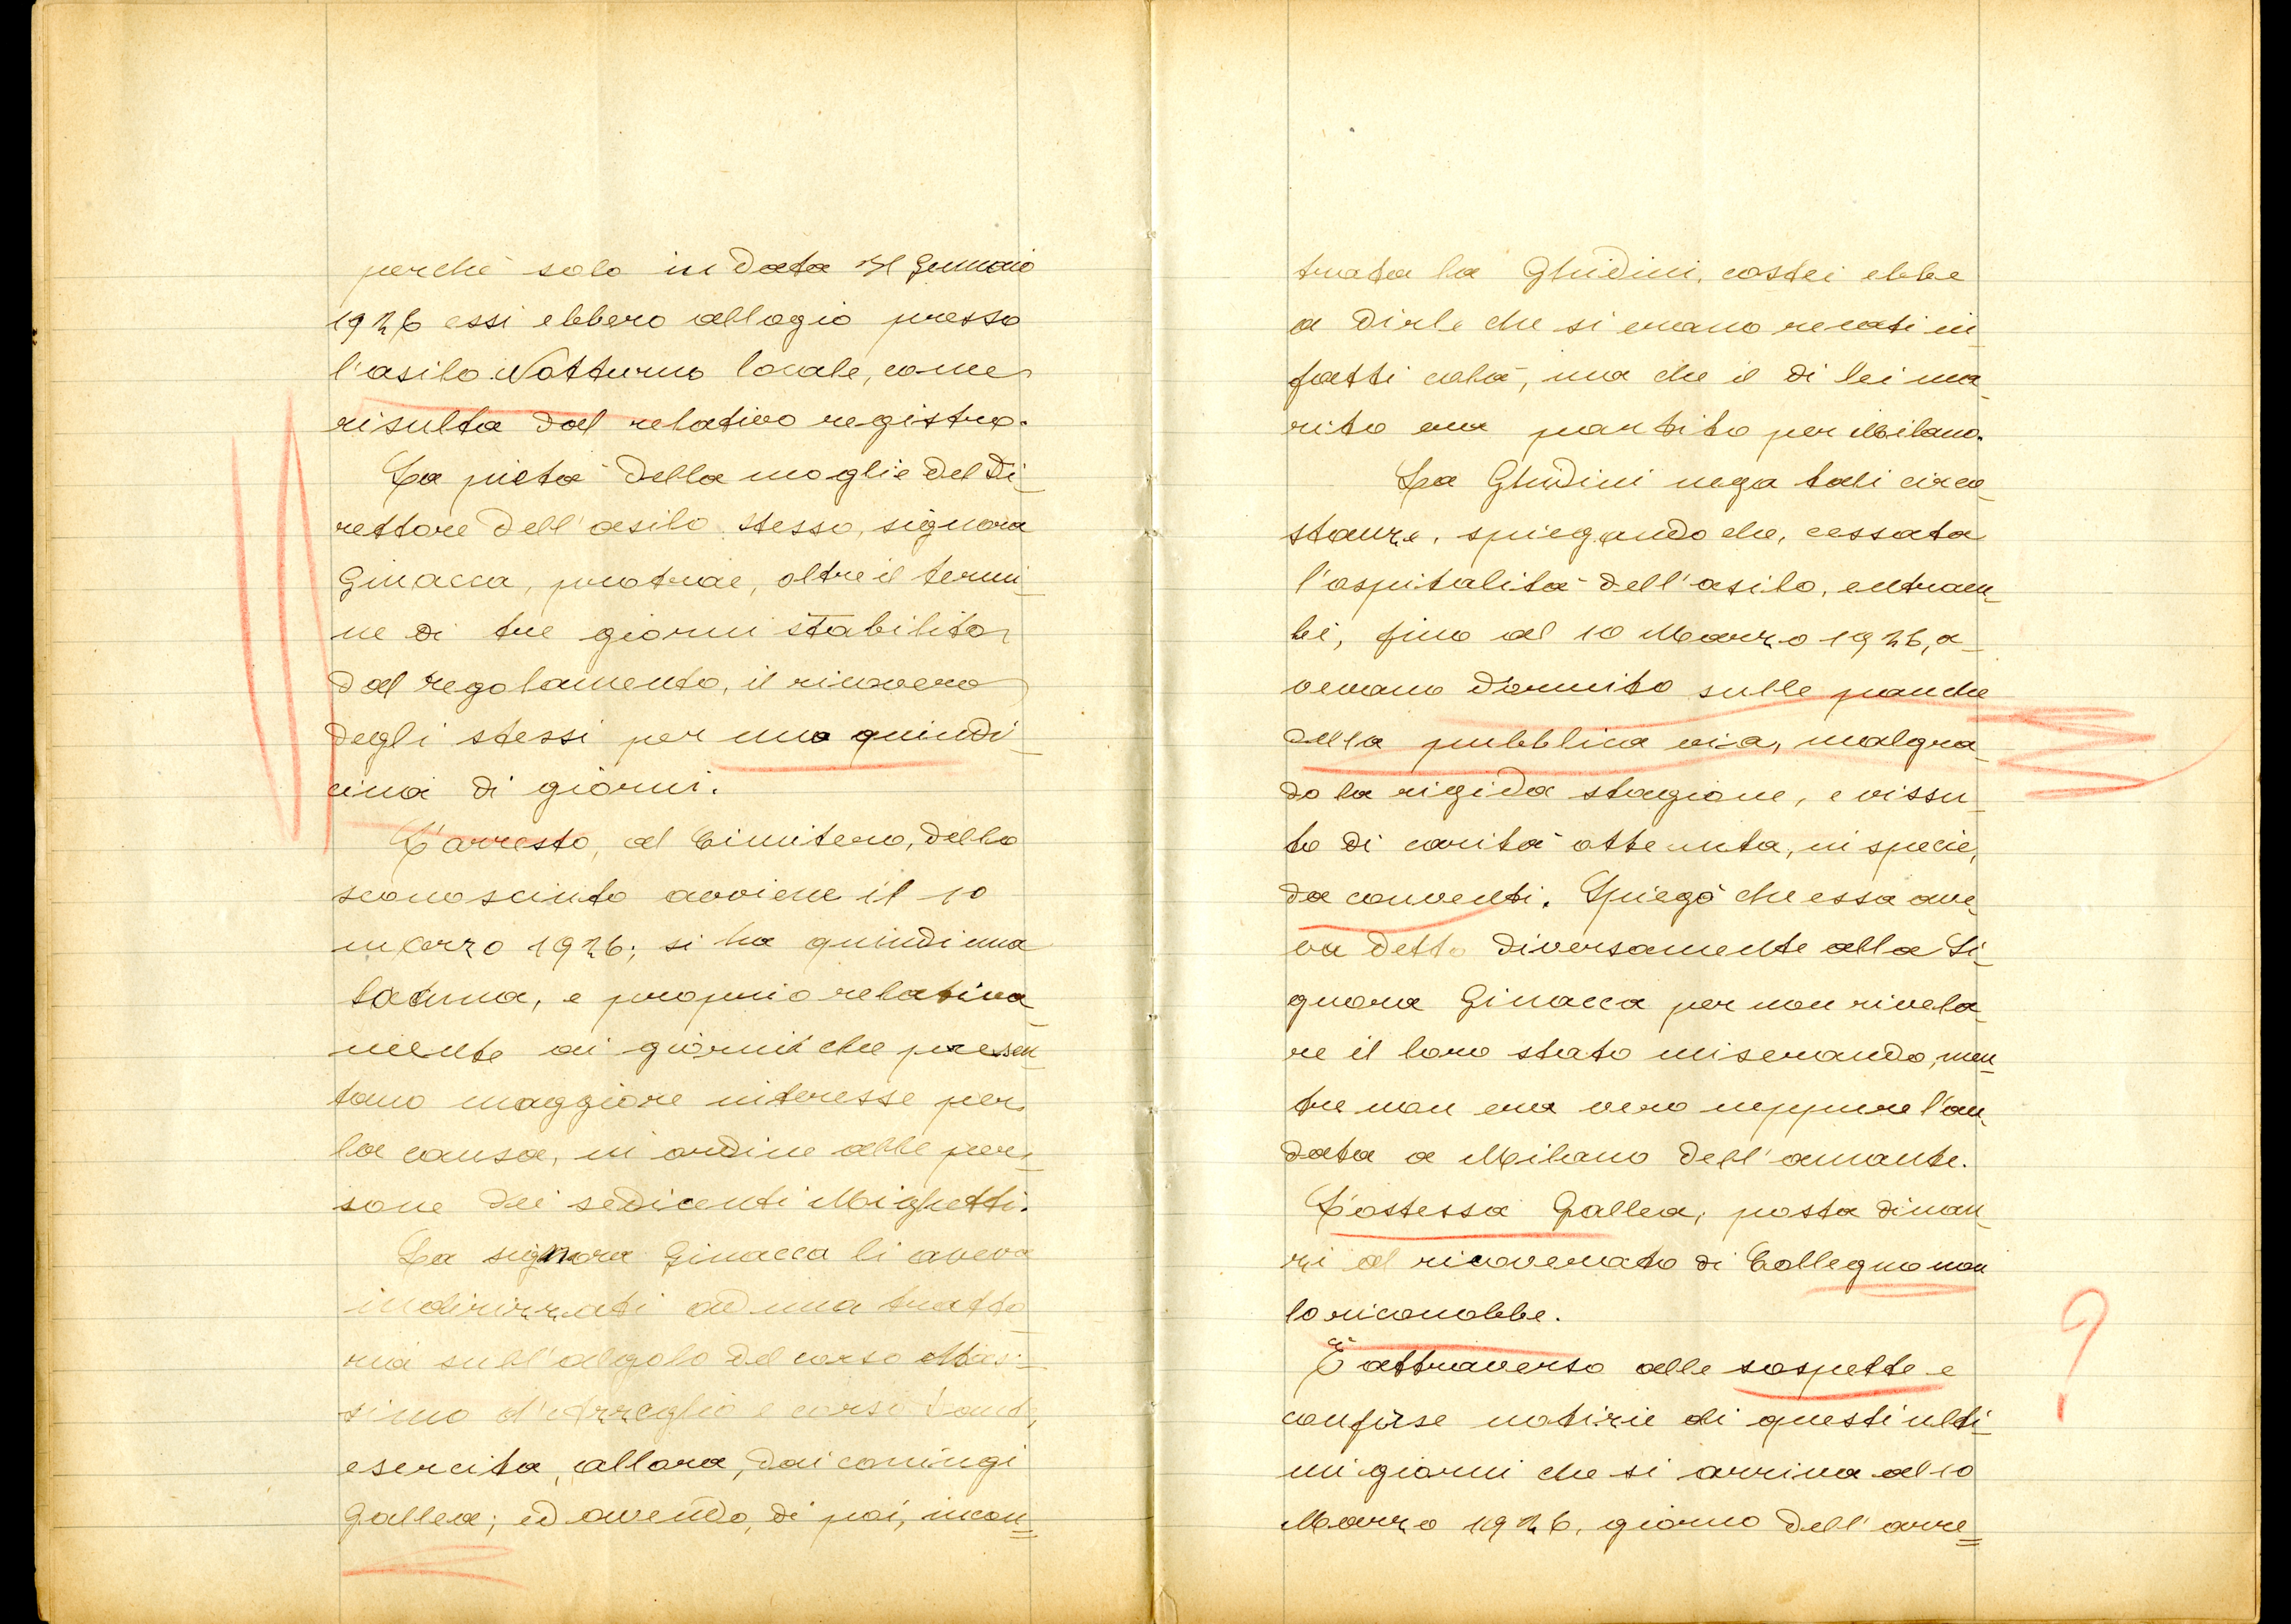 perchè solo in data 31 Gennaio
1926 essi ebbero allogio presso
l'asilo Notturno locale, come
risulta dal relativo registro.
La pietà della moglie del Di-
rettore dell'asilo stesso, signora
Ginacca, protrae, oltre il termi-
ne di tre giorni stabilito
dal regolamento, il ricovero
degli stessi per una quindi-
cina di giorni.
L'arresto, al Cimitero, dello
sconosciuto avviene il 10
marzo 1926; si ha quindi una
lacuna, e proprio relativa-
mente ai giorni che presen-
tano maggiore interesse per
la causa, in ordine alle per-
sone dei sedicenti Mighetti.
La signora Ginacca li aveva
indirizzati ad una tratto-
ria sull'algolo del corso Mas-
simo d'Azzeglio e corso Dante,
esercita, allora, dai coniugi
Gallea; ed avendo, di poi, incon=
trata la Ghidini, costei ebbe
a dirle che si erano recati in-
fatti colà, ma che il di lei ma-
rito era partito per Milano.
La Ghidini nega tali circo-
stanze, spiegando che, cessata
l'ospitalità dell'asilo, entram-
bi, fino al 10 Marzo 1926, a-
vevano dormito sulle panche
della pubblica via, malgra-
do la rigida stagione, e vissu-
to di carità ottenuta, in specie,
da conventi. Spiegò che essa ave-
va detto diversamente alla Si-
gnora Ginacca per non rivela-
re il loro stato miserando, men-
tre non era vero neppure l'an-
data a Milano dell'amante.
L'ostessa Gallea, posta dinan-
zi al ricoverato di Collegno non
lo riconobbe.
È attraverso alle sospette e
confuse notizie di questi ulti-
mi giorni che si arriva al 10
Marzo 1926, giorno dell'arre=
?